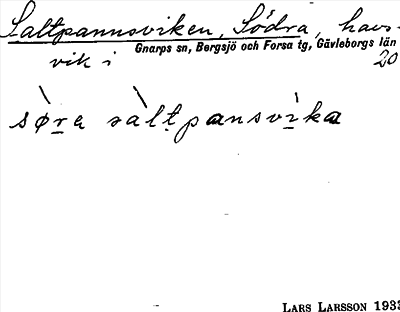 Saltpannsviken, Södra, havs-
Gnarps sn, Bergsjö och Forsa tg, Gävleborgs län
vik i 20
sø̀ra sàltpansvìka
LARS LARSSON 1933